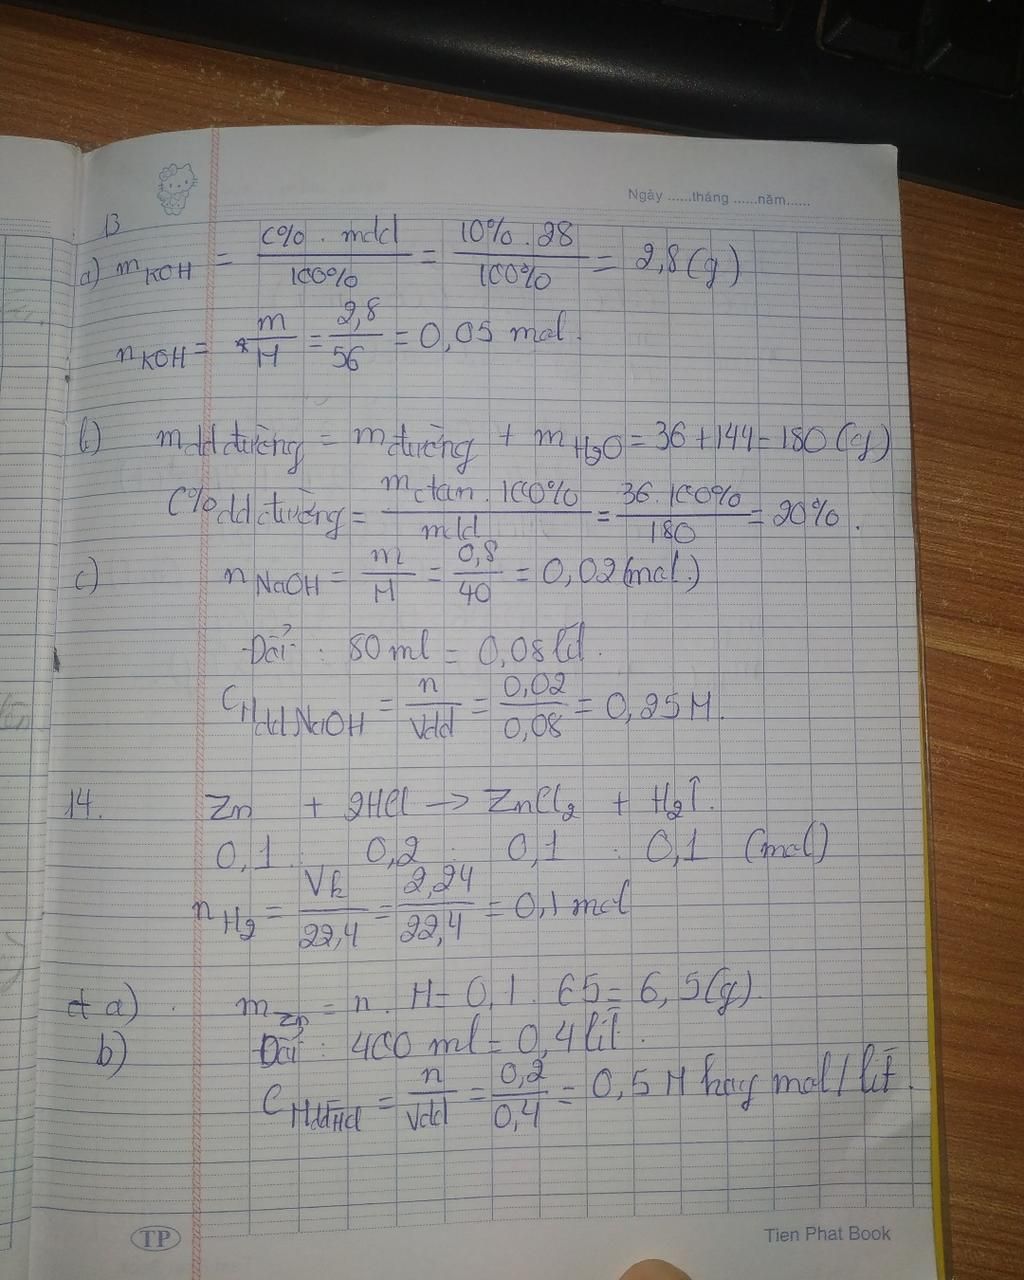 Ngày ......tháng ......năm......
13
a) m KOH = C% . mdd / 100% = 10% . 28 / 100% = 2,8 (g)
n KOH = m / M = 2,8 / 56 = 0,05 mol.
b) m dd đường = m đường + m H2O = 36 + 144 = 180 (g)
C% dd đường = m ctan . 100% / mdd = 36 . 100% / 180 = 20%.
c) n NaOH = m / M = 0,8 / 40 = 0,02 (mol.)
Đổi : 80 ml = 0,08 lít.
C M dd NaOH = n / Vdd = 0,02 / 0,08 = 0,25 M.
14. Zn + 2HCl → ZnCl2 + H2↑.
0,1 : 0,2 : 0,1 : 0,1 (mol)
n H2 = Vk / 22,4 = 2,24 / 22,4 = 0,1 mol
a) m Zn = n . M = 0,1 . 65 = 6,5 (g).
b) Đổi : 400 ml = 0,4 lít.
C M dd HCl = n / Vdd = 0,2 / 0,4 = 0,5 M hay mol / lít.
TP
Tien Phat Book